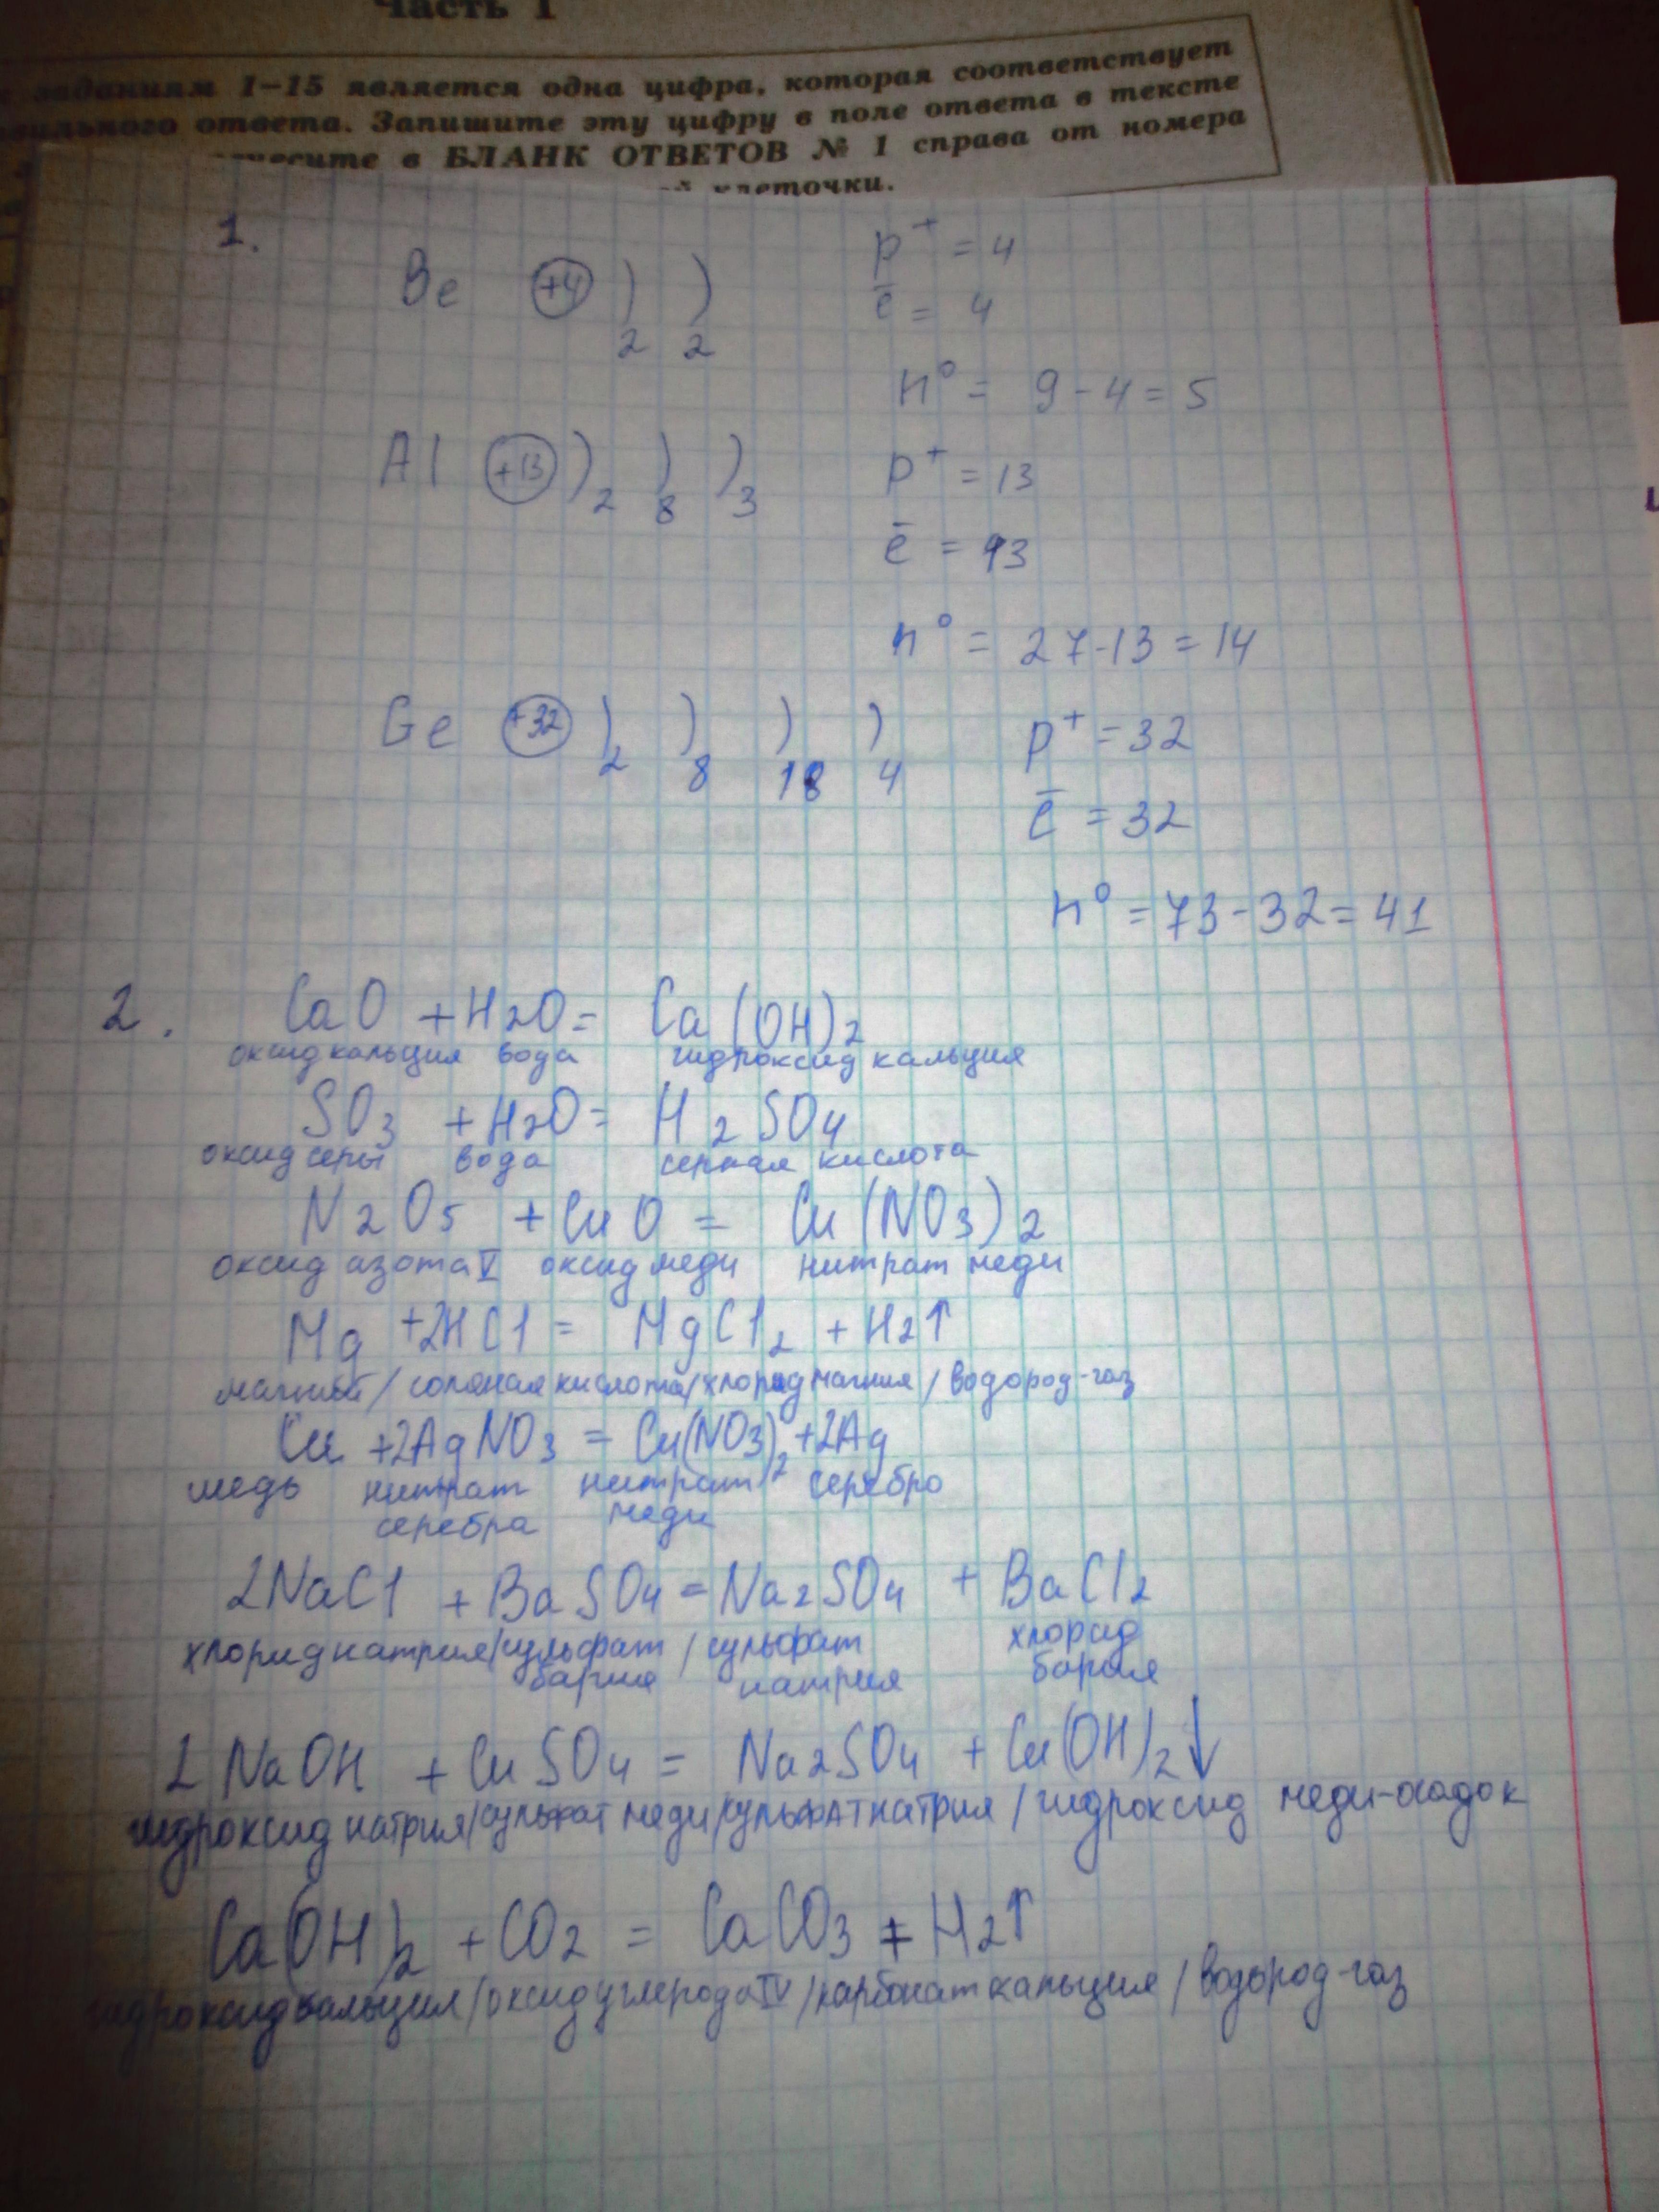 Часть 1
заданиям 1–15 является одна цифра, которая соответствует
ответа. Запишите эту цифру в поле ответа в тексте
в БЛАНК ОТВЕТОВ № 1 справа от номера
клеточки.
1.
Be +4 ) ) p⁺ = 4
2 2 ē = 4
n⁰ = 9 - 4 = 5
Al +13 )₂ )₈ )₃ p⁺ = 13
ē = 13
n⁰ = 27-13 = 14
Ge +32 ) ) ) ) p⁺ = 32
2 8 18 4
ē = 32
n⁰ = 73-32 = 41
2. CaO + H₂O = Ca(OH)₂
оксид кальция вода гидроксид кальция
SO₃ + H₂O = H₂SO₄
оксид серы вода серная кислота
N₂O₅ + CuO = Cu(NO₃)₂
оксид азота V оксид меди нитрат меди
Mg + 2HCl = MgCl₂ + H₂↑
магний / соляная кислота / хлорид магния / водород-газ
Cu + 2AgNO₃ = Cu(NO₃)₂ + 2Ag
медь нитрат нитрат серебро
серебра меди
2NaCl + BaSO₄ = Na₂SO₄ + BaCl₂
хлорид натрия / сульфат / сульфат хлорид
бария натрия бария
2NaOH + CuSO₄ = Na₂SO₄ + Cu(OH)₂↓
гидроксид натрия / сульфат меди / сульфат натрия / гидроксид меди-осадок
Ca(OH)₂ + CO₂ = CaCO₃ + H₂↑
гидроксид кальция / оксид углерода IV / карбонат кальция / водород-газ